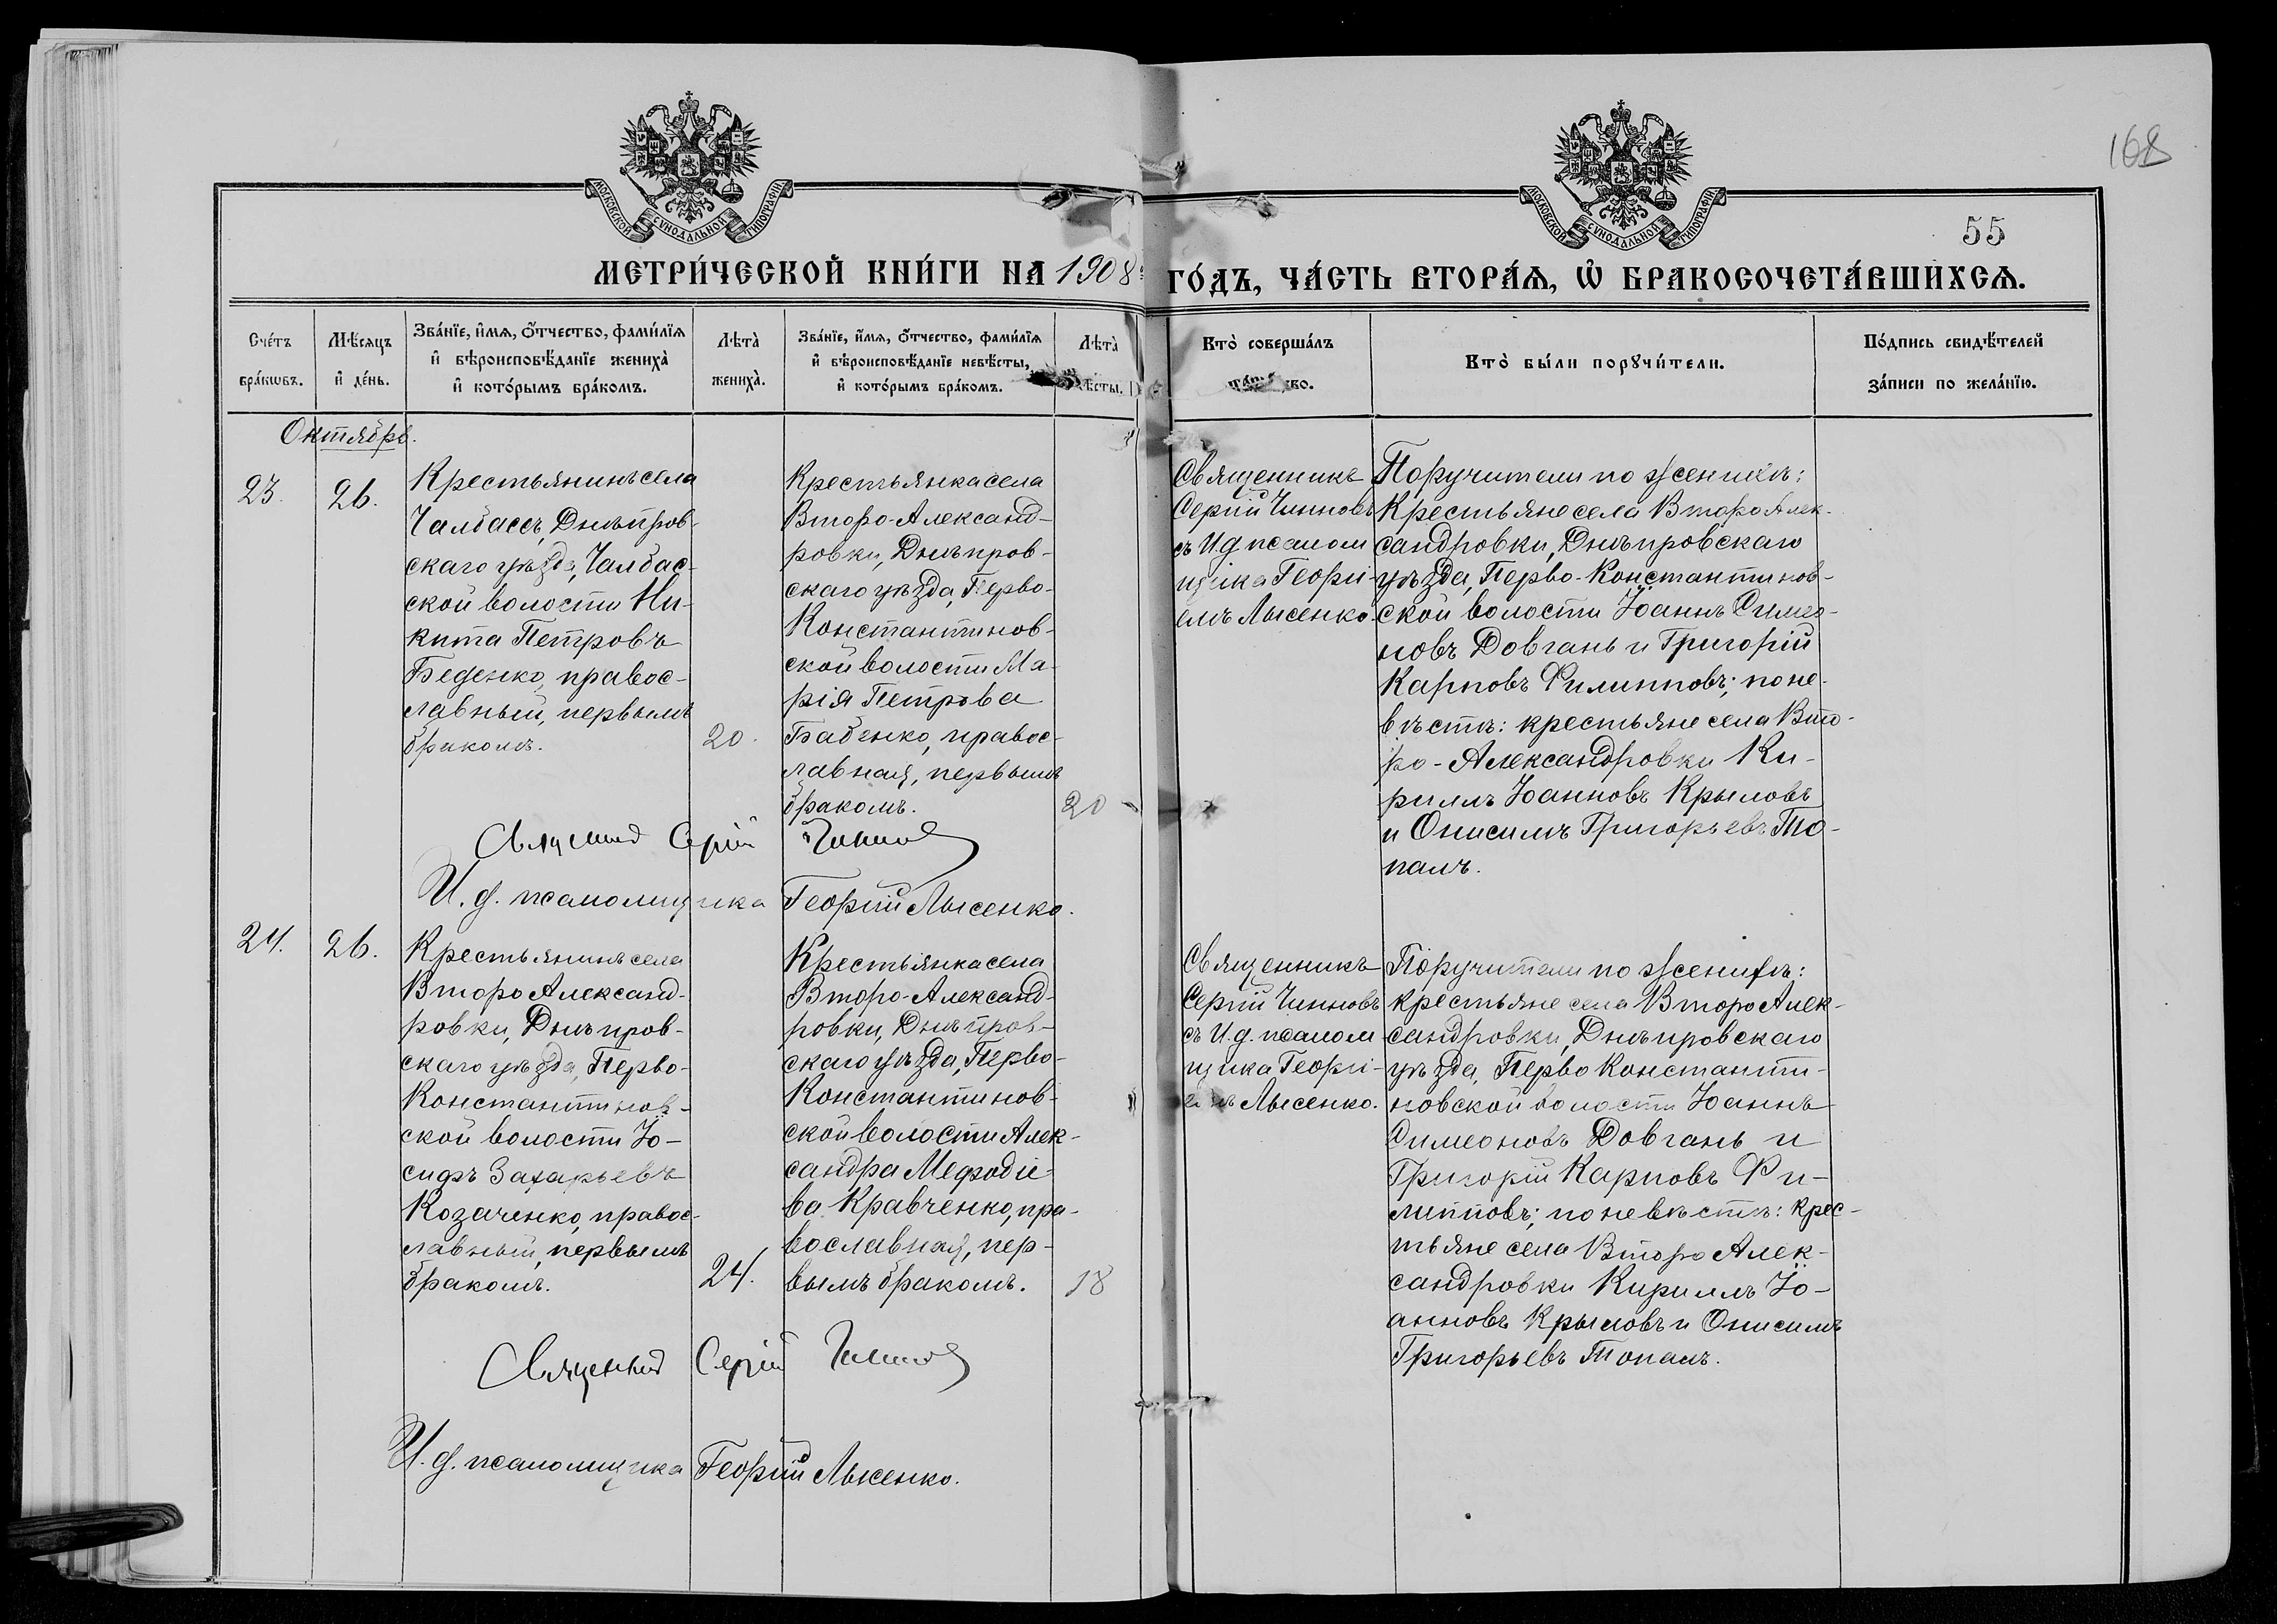 168
МОСКОВСКОЙ СѴНОДАЛЬНОЙ ТИПОГРАФІИ
МОСКОВСКОЙ СѴНОДАЛЬНОЙ ТИПОГРАФІИ
55
МЕТРИ́ЧЕСКОЙ КНИ́ГИ НА 1908 ГО́ДЪ, ЧА́СТЬ ВТОРА́Ѧ, Ѡ҆ БРАКОСОЧЕТА́ВШИХСѦ.
Сче́тъ
бра́кѡвъ.
Мѣ́сяцъ
и҆ де́нь.
Зва́нїе, и҆́мѧ, ѻ҆́тчество, фами́лїѧ
и҆ вѣроисповѣ́данїе жениха̀
и҆ кото́рымъ бра́комъ.
Лѣта̀
жениха̀.
Зва́нїе, и҆́мѧ, ѻ҆́тчество, фами́лїѧ
и҆ вѣроисповѣ́данїе невѣ́сты,
и҆ кото́рымъ бра́комъ.
Лѣта̀
ѣ́сты.
Кто̀ соверша́лъ
во.
Кто̀ бы́ли порꙋчи́тели.
По́дпись свидѣ́телей
за́писи по жела́нїю.
Октябрь.
23.
26.
Крестьянинъ села
Чалбассъ, Днѣпров-
скаго уѣзда, Чалбас-
ской волости Ни-
кита Петровъ
Беденко, правос-
лавный, первымъ
бракомъ.
20.
Крестьянка села
Второ-Александ-
ровки, Днѣпров-
скаго уѣзда, Перво-
Константинов-
ской волости Ма-
рія Петрова
Бабенко, правос-
лавная, первымъ
бракомъ.
20
Священникъ
Сергій Чинновъ
съ И.д псалом
щика Георгі-
емъ Лысенко.
Поручители по женихѣ:
Крестьяне села Второ Алек-
сандровки, Днѣпровскаго
уѣзда, Перво-Константинов-
ской волости Іоаннъ Симео-
новъ Довгань и Григорій
Карповъ Филипповъ; по не-
вѣстѣ: крестьяне села Вто-
ро-Александровки Ки-
риллъ Іоанновъ Крыловъ
и Онисимъ Григорьевъ То-
палъ.
Священник Сергій Чиннов
И. д. псаломщика Георгій Лысенко.
24.
26.
Крестьянинъ села
Второ Александ-
ровки, Днѣпров-
скаго уѣзда, Перво-
Константинов-
ской волости Іо-
сифъ Захарьевъ
Козаченко, правос-
лавный, первымъ
бракомъ.
24.
Крестьянка села
Второ-Александ-
ровки, Днѣпров-
скаго уѣзда, Перво-
Константинов-
ской волости Алек-
сандра Меѳодіе-
ва Кравченко, пра-
вославная, пер-
вымъ бракомъ.
18
Священникъ
Сергій Чинновъ
съ И.д. псалом
щика Георгі-
емъ Лысенко.
Поручители по женихѣ:
крестьяне села Второ Алек-
сандровки, Днѣпровскаго
уѣзда, Перво Константи-
новской волости Іоаннъ
Симеоновъ Довгань и
Григорій Карповъ Фи-
липповъ; по невѣстѣ: крес-
тьяне села Второ Алек-
сандровки Кириллъ Іо-
анновъ Крыловъ и Онисимъ
Григорьевъ Топалъ.
Священник Сергій Чиннов
И. д. псаломщика Георгій Лысенко.